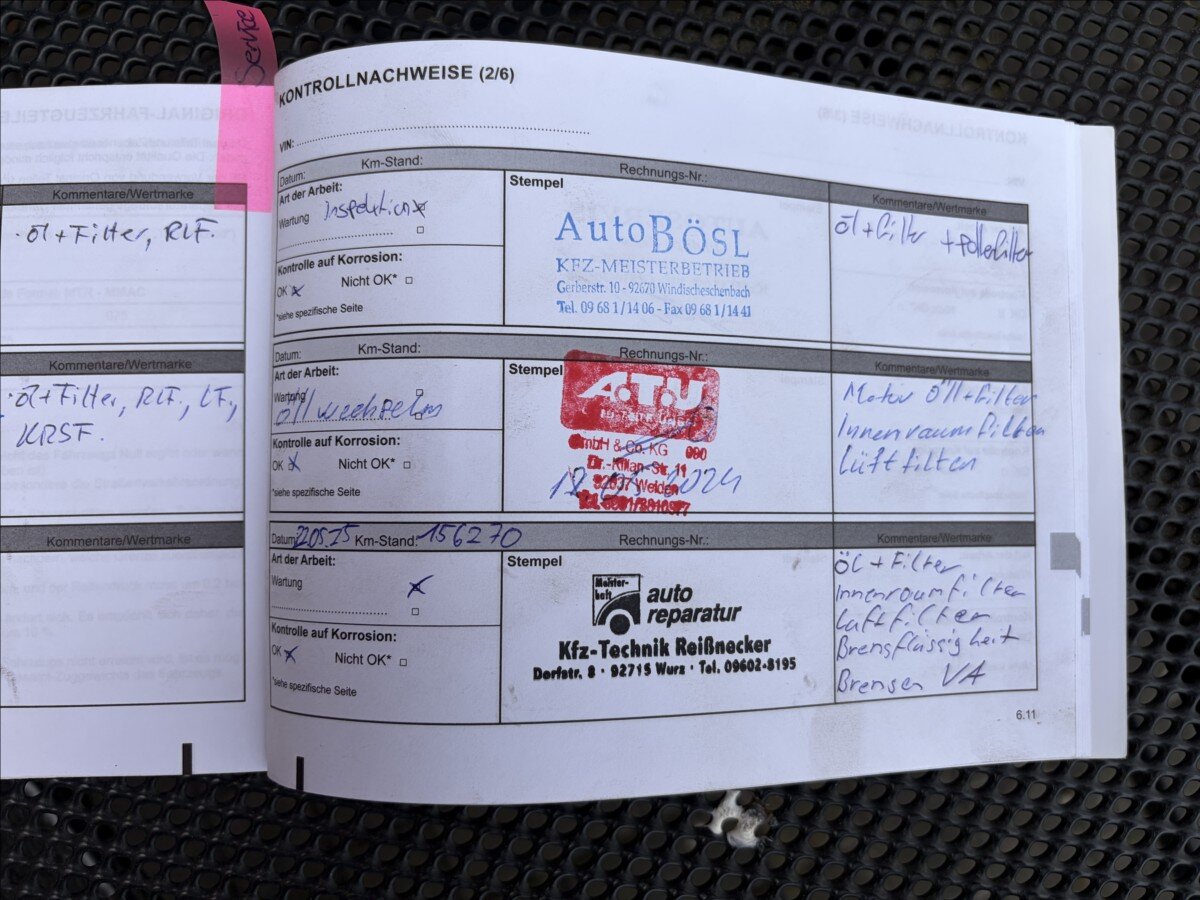 Service
Kommentare/Wertmarke
· Öl + Filter, RLF.
Kommentare/Wertmarke
· Öl + Filter, RLF., LF.,
KRSF.
Kommentare/Wertmarke
KONTROLLNACHWEISE (2/6)
VIN:
Datum: Km-Stand: Rechnungs-Nr.:
Art der Arbeit:
Wartung Inspektion x
Kontrolle auf Korrosion:
OK x Nicht OK*
*siehe spezifische Seite
Stempel
Auto BÖSL
KFZ-MEISTERBETRIEB
Gerberstr. 10 - 92670 Windischeschenbach
Tel. 09 68 1/14 06 - Fax 09 68 1/14 41
Kommentare/Wertmarke
Öl + filter + pollenfilter
Datum: Km-Stand: Rechnungs-Nr.:
Art der Arbeit:
Wartung
Öll wechseln
Kontrolle auf Korrosion:
OK x Nicht OK*
*siehe spezifische Seite
Stempel
A.T.U
GmbH & Co. KG 080
Dr.-Kilian-Str. 11
92637 Weiden
2024
Kommentare/Wertmarke
Motor Öll + filter
Innenraum filter
Lüftfilter
Datum: 22.05.25 Km-Stand: 156270 Rechnungs-Nr.:
Art der Arbeit:
Wartung x
Kontrolle auf Korrosion:
OK x Nicht OK*
*siehe spezifische Seite
Stempel
Meister-
haft
auto
reparatur
Kfz-Technik Reißnecker
Dorfstr. 8 · 92715 Wurz · Tel. 09602-8195
Kommentare/Wertmarke
Öl + Filter
Innenraumfilter
Luftfilter
Bremsflüssigkeit
Bremsen VA
6.11